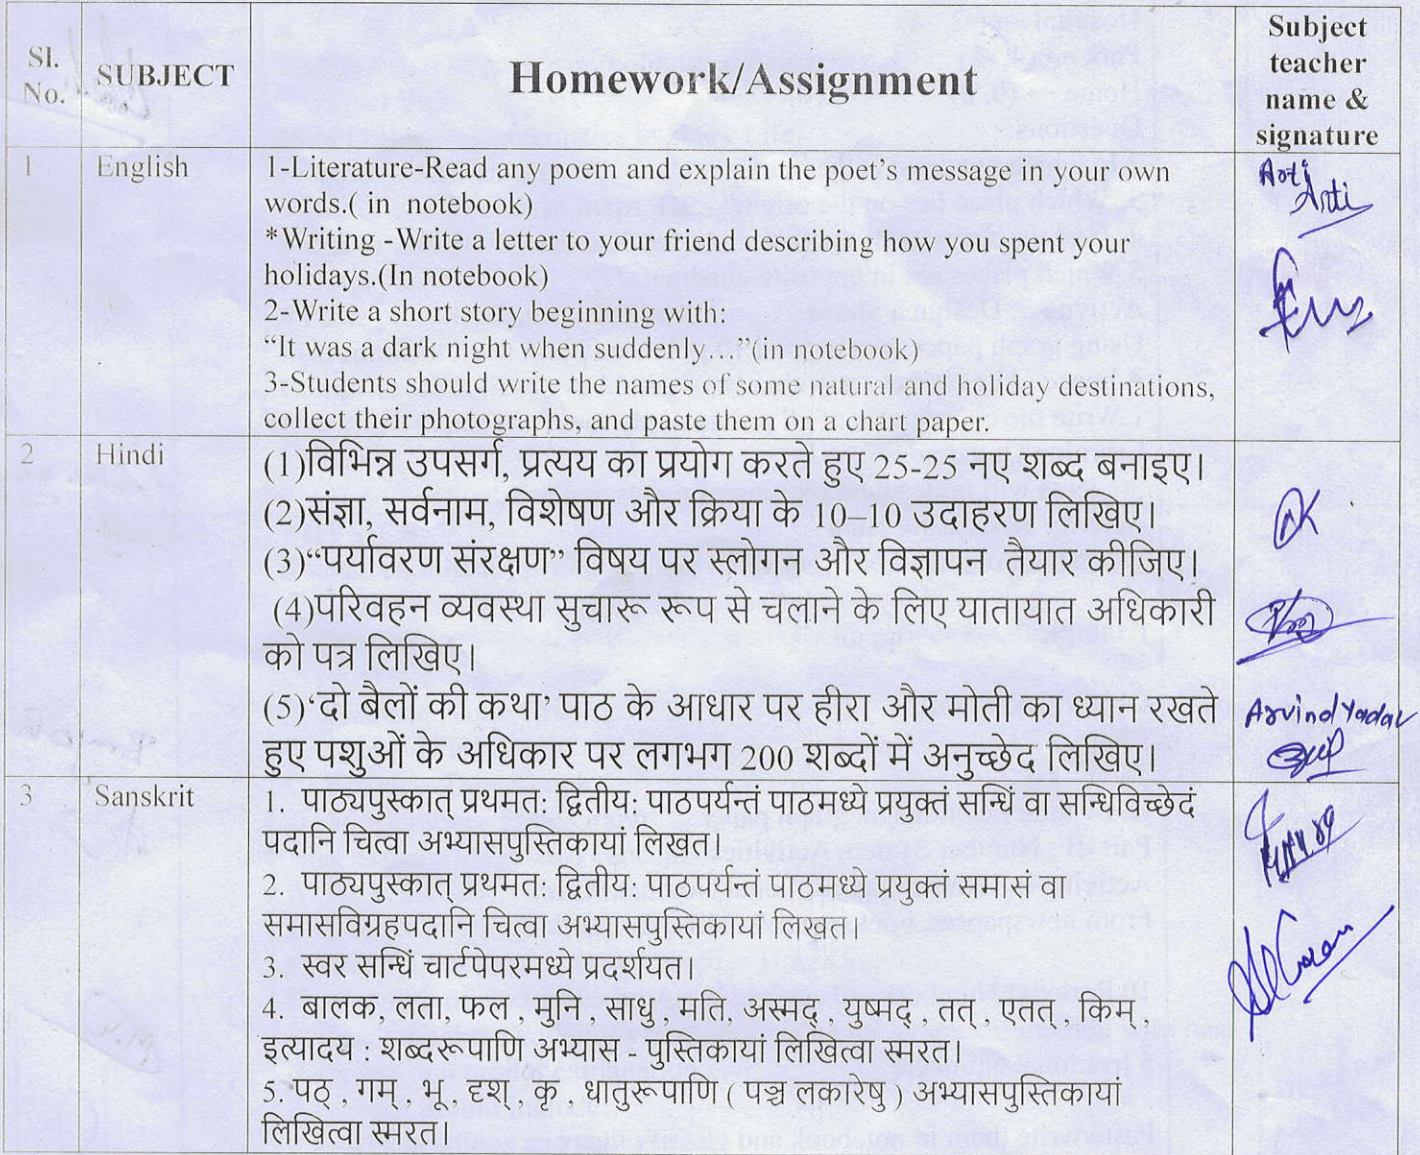 Sl. No.
SUBJECT
Homework/Assignment
Subject teacher name & signature
1
English
1-Literature-Read any poem and explain the poet's message in your own
words.( in notebook)
*Writing -Write a letter to your friend describing how you spent your
holidays.(In notebook)
2-Write a short story beginning with:
“It was a dark night when suddenly…”(in notebook)
3-Students should write the names of some natural and holiday destinations,
collect their photographs, and paste them on a chart paper.
Arti
Arti
2
Hindi
(1)विभिन्न उपसर्ग, प्रत्यय का प्रयोग करते हुए 25-25 नए शब्द बनाइए।
(2)संज्ञा, सर्वनाम, विशेषण और क्रिया के 10–10 उदाहरण लिखिए।
(3)“पर्यावरण संरक्षण” विषय पर स्लोगन और विज्ञापन तैयार कीजिए।
(4)परिवहन व्यवस्था सुचारू रूप से चलाने के लिए यातायात अधिकारी
को पत्र लिखिए।
(5)‘दो बैलों की कथा’ पाठ के आधार पर हीरा और मोती का ध्यान रखते
हुए पशुओं के अधिकार पर लगभग 200 शब्दों में अनुच्छेद लिखिए।
Arvind Yadav
3
Sanskrit
1. पाठ्यपुस्कात् प्रथमत: द्वितीय: पाठपर्यन्तं पाठमध्ये प्रयुक्तं सन्धिं वा सन्धिविच्छेदं
पदानि चित्वा अभ्यासपुस्तिकायां लिखत।
2. पाठ्यपुस्कात् प्रथमत: द्वितीय: पाठपर्यन्तं पाठमध्ये प्रयुक्तं समासं वा
समासविग्रहपदानि चित्वा अभ्यासपुस्तिकायां लिखत।
3. स्वर सन्धिं चार्टपेपरमध्ये प्रदर्शयत।
4. बालक, लता, फल , मुनि , साधु , मति, अस्मद् , युष्मद् , तत् , एतत् , किम् ,
इत्यादय : शब्दरूपाणि अभ्यास - पुस्तिकायां लिखित्वा स्मरत।
5.पठ् , गम् , भू , दृश् , कृ , धातुरूपाणि ( पञ्च लकारेषु ) अभ्यासपुस्तिकायां
लिखित्वा स्मरत।